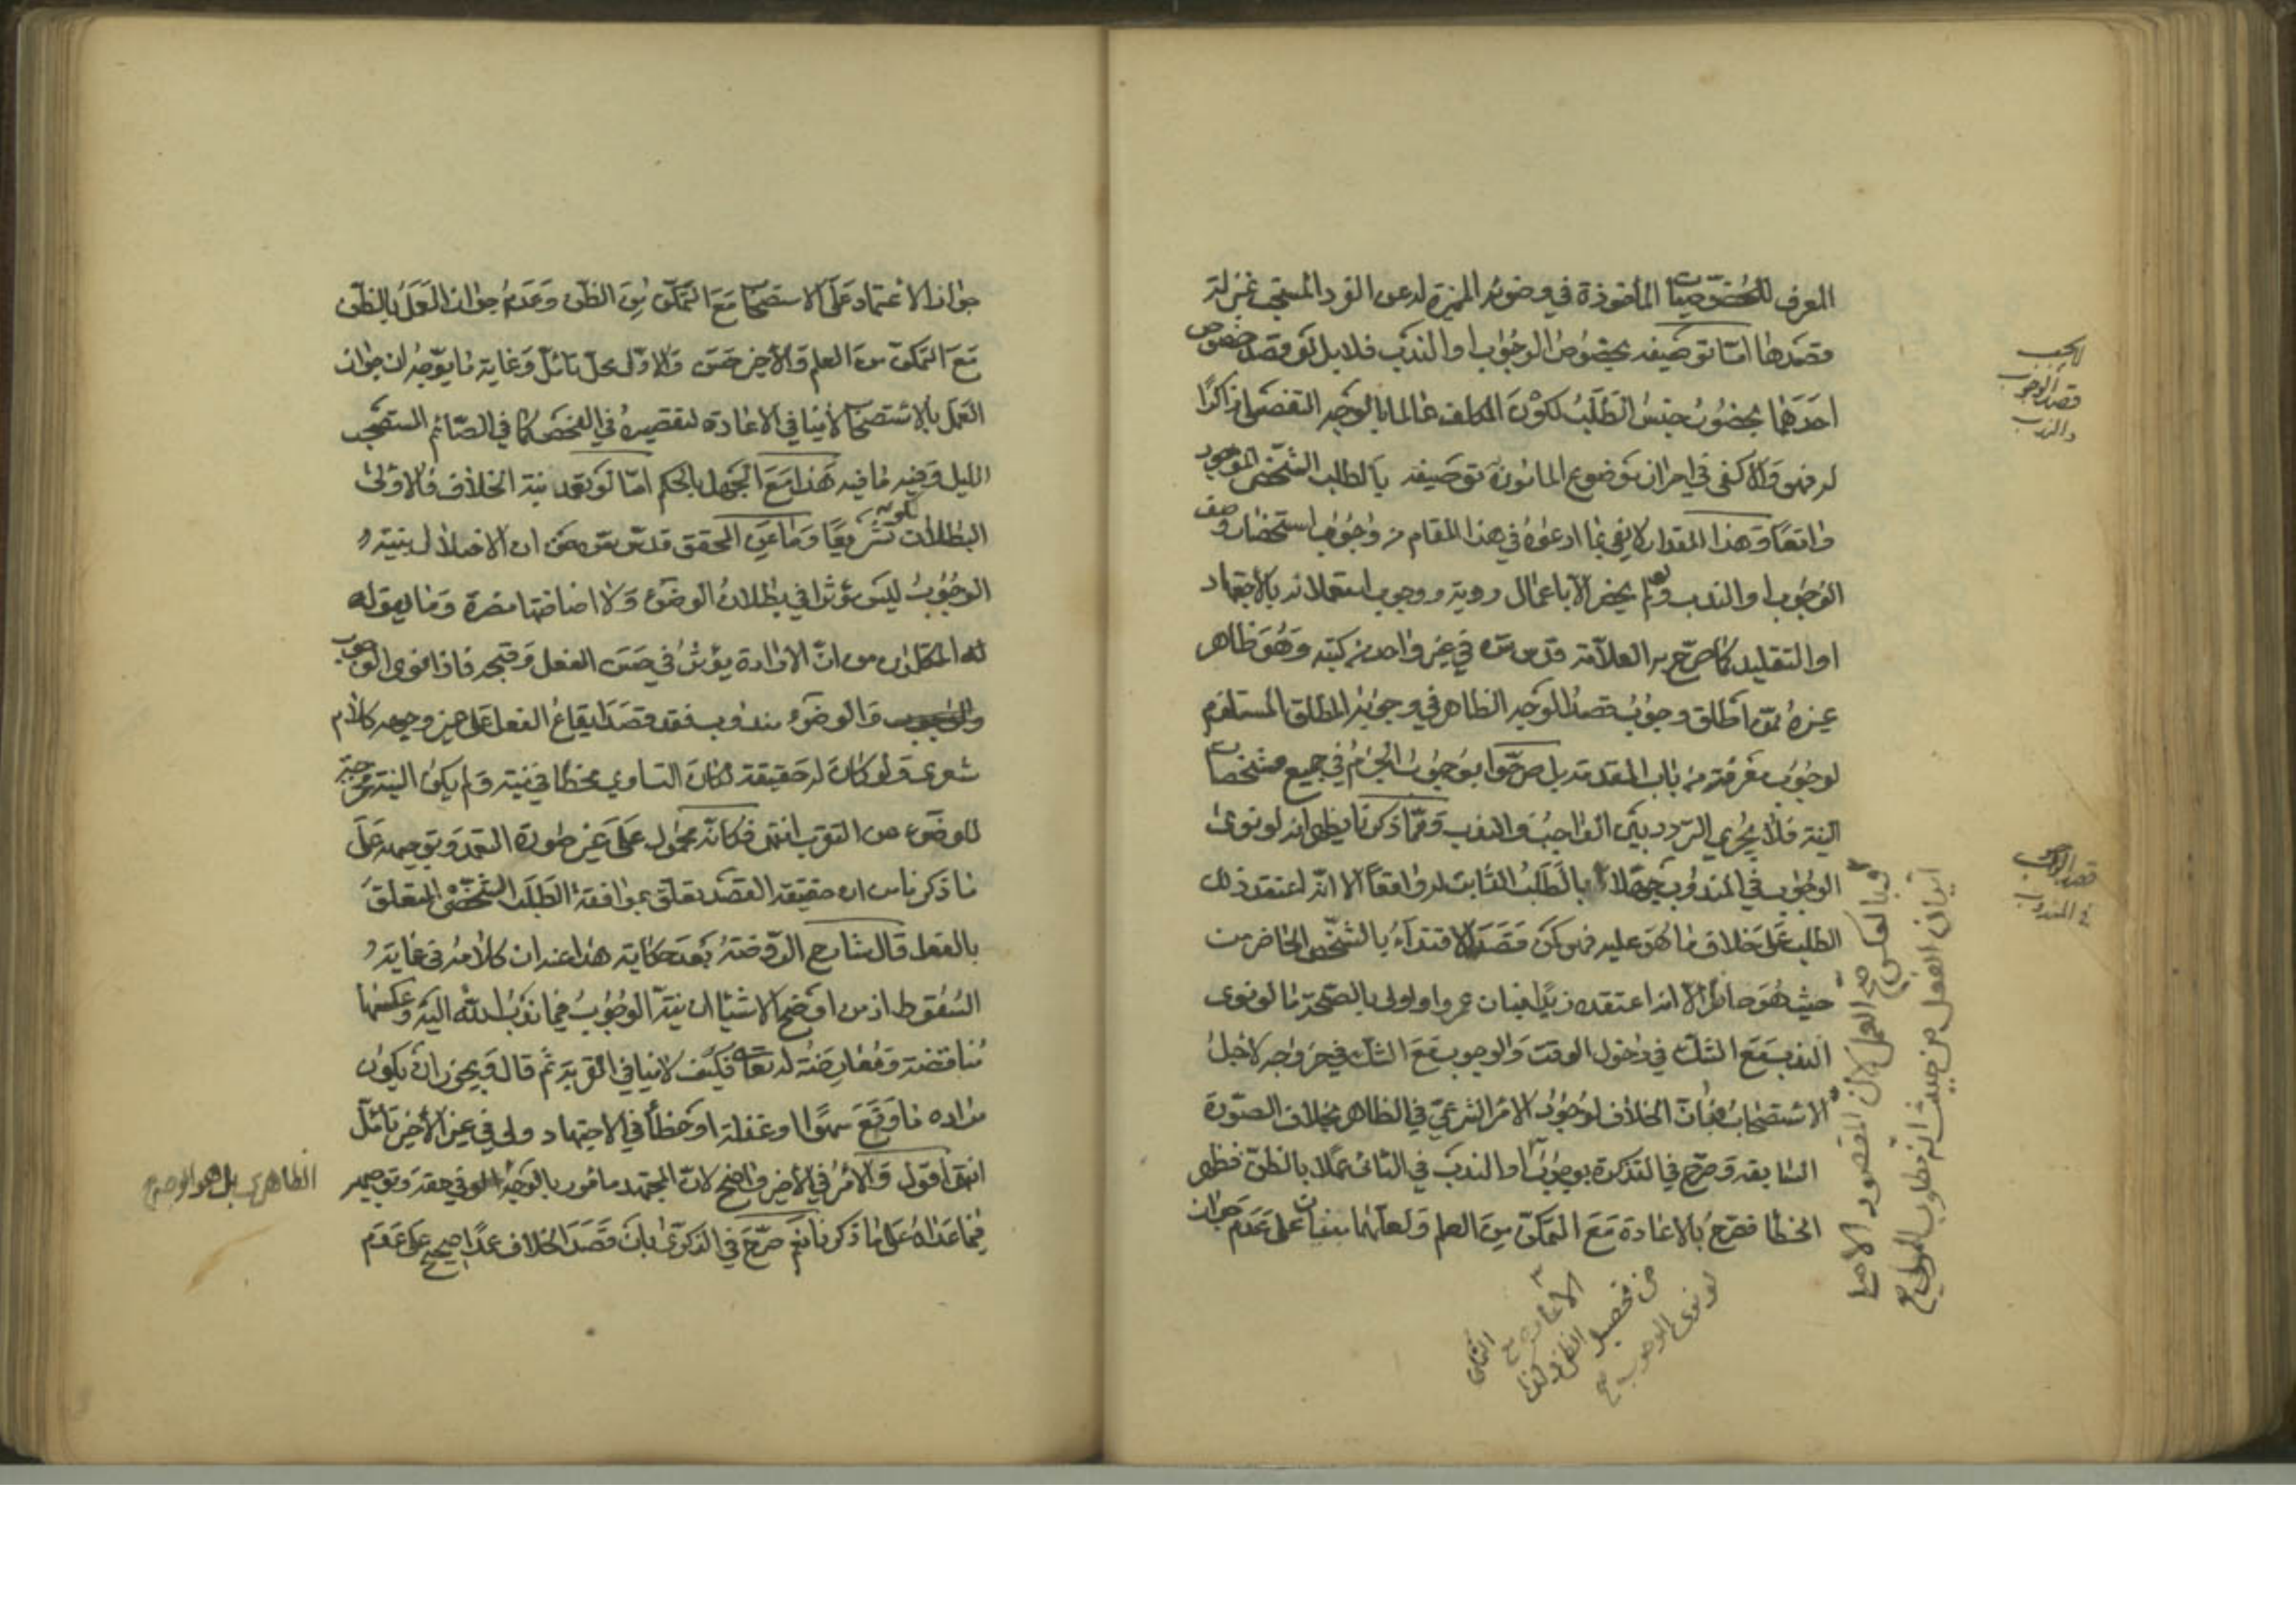 المعرف للخصوصيات المأخوذة في وضوئه المميزة له عن الفرد المستحب بمنزلة
قصدها اما توصيفه بخصوص الوجوب او الندب فلا بل لو قصد خصوص
احدهما بخصوص جنس الطلب لكون المكلف عالما بالوجه التفصيلي ذاكرا
له فهو والا كفى في احراز موضوع المامور به توصيفه بالطلب الشخصي الموجود
واقعا وهذا المقدار لا يفي بما ادعوه في هذا المقام من وجوب استحضار وصف
الوجوب او الندب ولو لم يحضر الا باعمال روية ووجوب استعلامه بالاجتهاد
او التقليد كما صرح به العلامة قدس سره في غير واحد من كتبه وهو ظاهر
غيره ممن اطلق وجوب قصد الوجه الظاهر في وجوبه المطلق المستلزم
لوجوب معرفته من باب المقدمة بل صرحوا بوجوب الجزم في جميع مشخصات
النية فلا يجزي الترديد بين الواجب والندب ومما ذكرنا يظهر انه لو نوى
الوجوب في المندوب جهلا بالطلب الثابت له واقعا الا انه اعتقد ذلك
الطلب على خلاف ما هو عليه فهو كمن قصد الاقتداء بالشخص الحاضر من
حيث هو حاضر الا انه اعتقده زيدا فبان عمروا واولى بالصحة ما لو نوى
الندب مع الشك في دخول الوقت والوجوب مع الشك في خروجه لاجل
الاستصحاب فبان الخلاف لوجود الامر الشرعي في الظاهر بخلاف الصورة
السابقة وصرح في التذكرة بوجوب او الندب في الثاني عملا بالظن فظهر
الخطا فصرح بالاعادة مع التمكن من العلم ولعلهما مبنيان على عدم جواز
لا يجب
قصد الوجوب
والندب
قصد الوجوب
في المندوب
وبالعكس صح العمل لان المقصود الاصلي
اتيان الفعل من حيث انه مطلوب للمولى
من تحصيل الظن وكذا
لو نوى الوجوب
جواز الاعتماد على الاستصحاب مع التمكن من الظن وعدم جواز العمل بالظن
مع التمكن من العلم والاخير حسن والاول محل تأمل وغاية ما يوجه ان جواز
العمل بالاستصحاب لا ينافي الاعادة لتقصيره في الفحص كما في الصائم المستصحب
الليل وفيه ما فيه هذا مع الجهل بالحكم اما لو تعمد نية الخلاف فالاولى
البطلان لكونه تشريعا وما عن المحقق قدس سره من ان الاخلال بنية
الوجوب ليس مؤثرا في بطلان الوضوء ولا اضافتها مضرة وما يقوله
المتكلمون من ان الارادة يؤثر في حسن الفعل وقبحه فاذا نوى الوجوب
والوضوء مندوب فقد قصد ايقاع الفعل على غير وجهه كلام
شعري ولو كان له حقيقة لكان الناوي مخطئا في نيته ولم يكن النية مخرجة
للوضوء عن التقرب انتهى فكانه محمول على غير صورة التعمد وتوجيهه على
ما ذكرنا من ان حقيقة القصد تعلق بموافقة الطلب الشخصي المتعلق
بالفعل قال شارح الروضة بعد حكاية هذا عنه ان كلامه في غاية
السقوط اذ من اوضح الاشياء ان نية الوجوب فيما ندب الله اليه وعكسها
مناقضة ومعارضة له تعالى فكيف لا ينافي القربة ثم قال ويجوز ان يكون
مراده ما وقع سهوا او غفلة او خطأ في الاجتهاد ولي في غير الاخير تأمل
انتهى اقول والامر في الاخير واضح لان المجتهد مامور بالوجه في حقه وتوجيهه
فيما عداه على ما ذكرنا نعم صرح في الذكرى بان قصد الخلاف عمدا صحيح على عدم
الظاهري بل هو الوجه